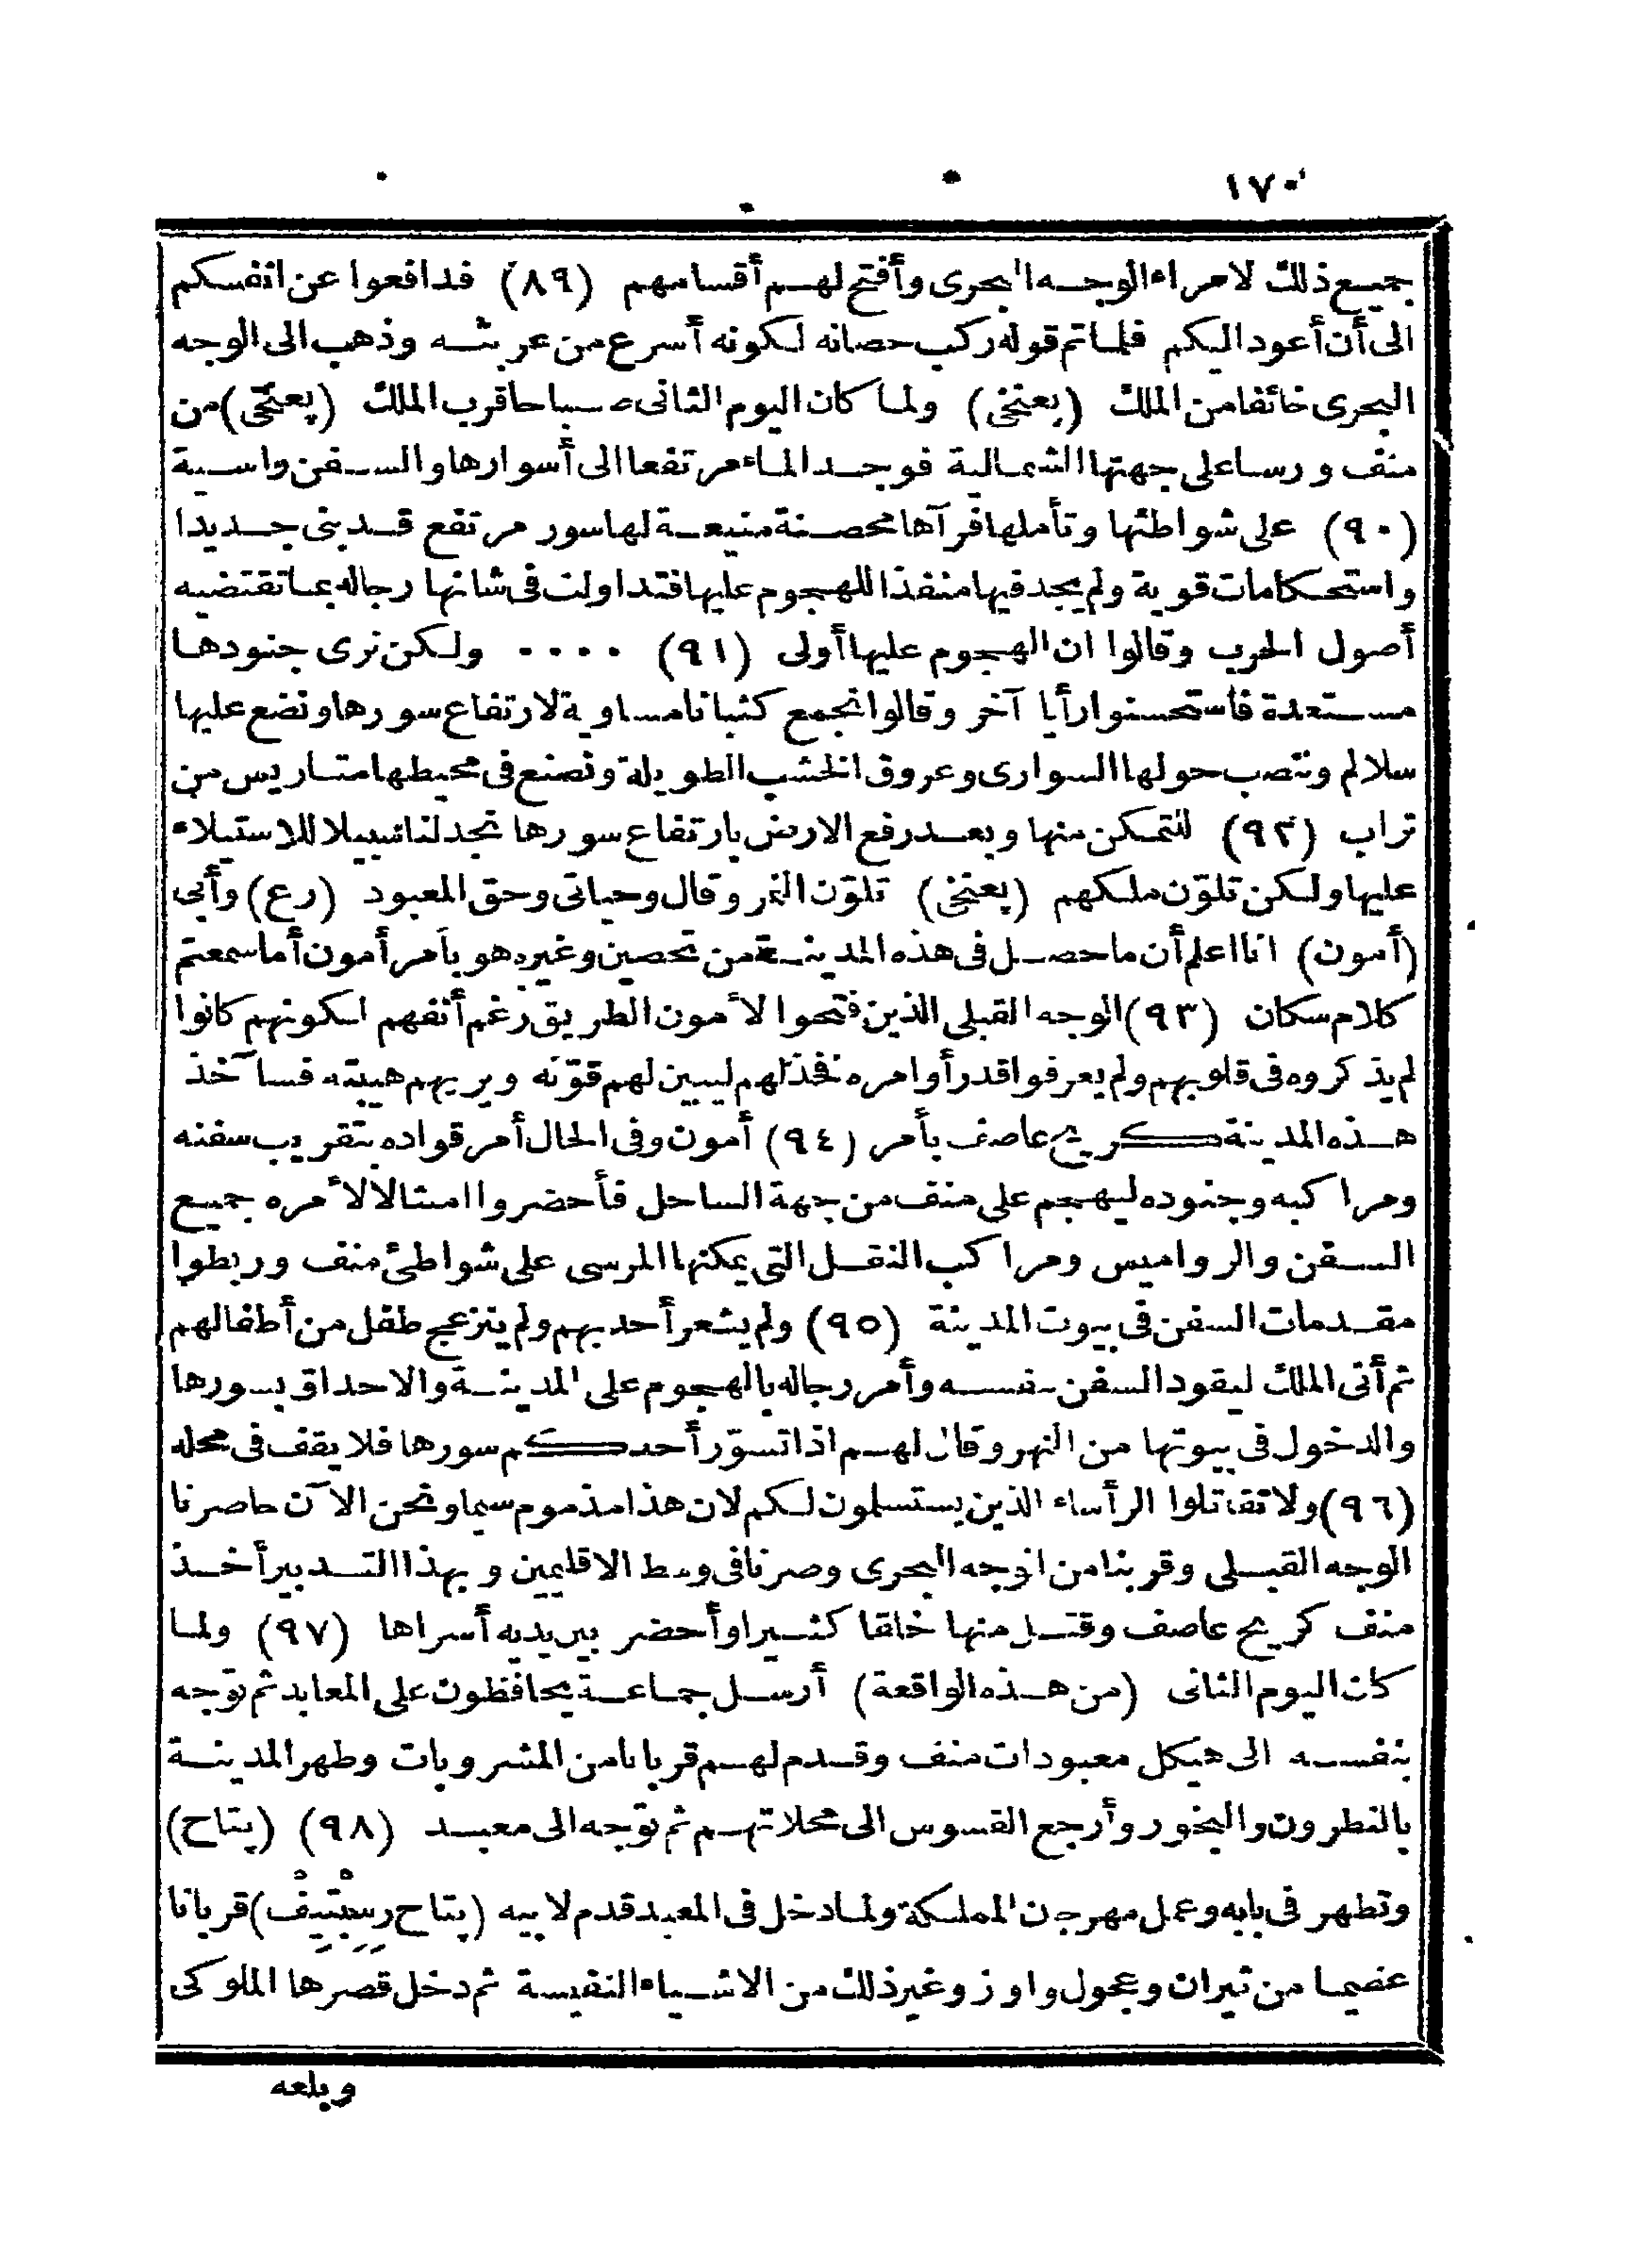 ١٧٠
جميع ذلك لامراء الوجه البحرى وأفتح لهم أقسامهم (٨٩) فدافعوا عن انفسكم
الى أن أعود اليكم فلما تم قوله ركب حصانه لكونه أسرع من عربته وذهب الى الوجه
البحرى خائفا من الملك (بعنخى) ولما كان اليوم الثانى صباحا قرب الملك (پعنخى) من
منف ورسا على جهتها الشمالية فوجد الماء مرتفعا الى أسوارها والسفن راسية
(٩٠) على شواطئها وتأملها فرآها محصنة منيعة لها سور مرتفع قد بنى جديدا
واستحكامات قوية ولم يجد فيها منفذا للهجوم عليها فتداولت فى شانها رجاله بما تقتضيه
أصول الحرب وقالوا ان الهجوم عليها أولى (٩١) ٠٠٠٠ ولكن نرى جنودها
مستعدة فاستحسنوا رأيا آخر وقالوا نجمع كثبانا مساوية لارتفاع سورها ونضع عليها
سلالم وننصب حولها السوارى وعروق الخشب الطويلة ونصنع فى محيطها متاريس من
تراب (٩٢) لنتمكن منها وبعد رفع الارض بارتفاع سورها نجد لنا سبيلا للاستيلاء
عليها ولكن تلوّن ملكهم (پعنخى) تلوّن النمر وقال وحياتى وحق المعبود (رع) وأبى
(أمون) انا اعلم أن ما حصل فى هذه المدينة من تحصين وغيره هو بأمر أمون أما سمعتم
كلام سكان (٩٣) الوجه القبلى الذين فتحوا لأمون الطريق رغم أنفهم لكونهم كانوا
لم يذكروه فى قلوبهم ولم يعرفوا قدر أوامره فخذلهم ليبين لهم قوّته ويريهم هيبته فسآخذ
هذه المدينة كريح عاصف بأمر (٩٤) أمون وفى الحال أمر قواده بتقريب سفنه
ومراكبه وجنوده ليهجم على منف من جهة الساحل فأحضروا امتثالا لأمره جميع
السفن والرواميس ومراكب النقل التى يمكنها المرسى على شواطئ منف وربطوا
مقدمات السفن فى بيوت المدينة (٩٥) ولم يشعر أحد بهم ولم ينزعج طفل من أطفالهم
ثم أتى الملك ليقود السفن بنفسه وأمر رجاله بالهجوم على المدينة والاحداق بسورها
والدخول فى بيوتها من النهر وقال لهم اذا تسوّر أحدكم سورها فلا يقف فى محله
(٩٦) ولا تقاتلوا الرأساء الذين يستسلمون لكم لان هذا مذموم سيما ونحن الآن حاصرنا
الوجه القبلى وقربنا من الوجه البحرى وصرنا فى وسط الاقليمين وبهذا التدبير أخذ
منف كريح عاصف وقتل منها خلقا كثيرا وأحضر بين يديه أسراها (٩٧) ولما
كان اليوم الثانى (من هذه الواقعة) أرسل جماعة يحافظون على المعابد ثم توّجه
بنفسه الى هيكل معبودات منف وقدم لهم قربانا من المشروبات وطهر المدينة
بالنطرون والبخور وأرجع القسوس الى محلاتهم ثم توّجه الى معبد (٩٨) (پتاح)
وتطهر فى بابه وعمل مهرجان المملكة ولما دخل فى المعبد قدم لابيه (پتاح رسبتيف) قربانا
عضيما من ثيران وعجول واوز وغير ذلك من الاشياء النفيسة ثم دخل قصرها الملوكى
وبلعه